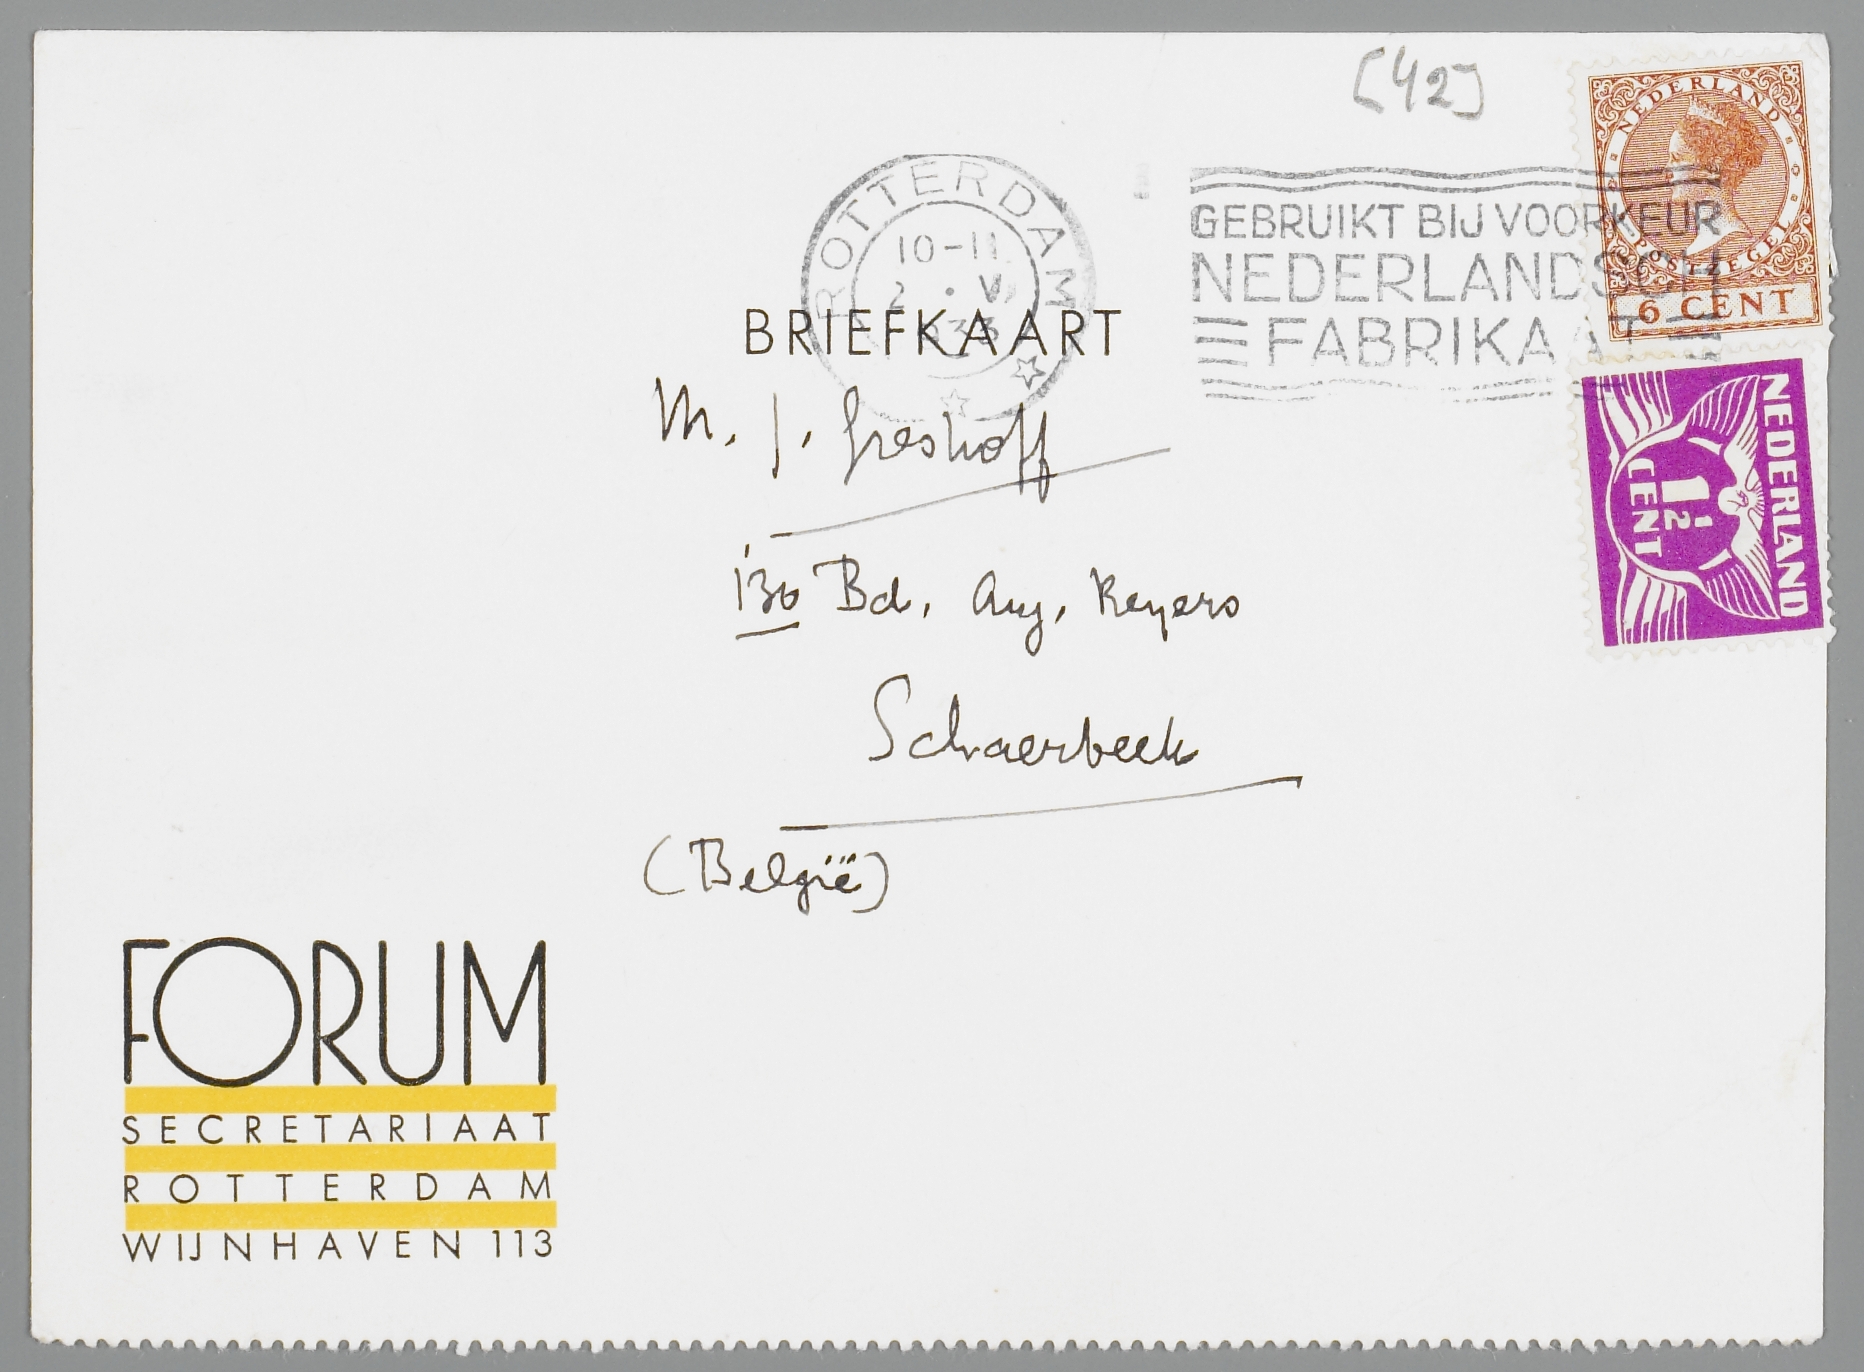 [42]
ROTTERDAM
10-11
2 . V
33
GEBRUIKT BIJ VOORKEUR
NEDERLANDSCH
FABRIKAAT
NEDERLAND
POSTZEGEL
6 CENT
NEDERLAND
1 1/2
CENT
BRIEFKAART
M. J. Greshoff
130 Bd. Aug. Reyers
Schaerbeek
(België)
FORUM
SECRETARIAAT
ROTTERDAM
WIJNHAVEN 113